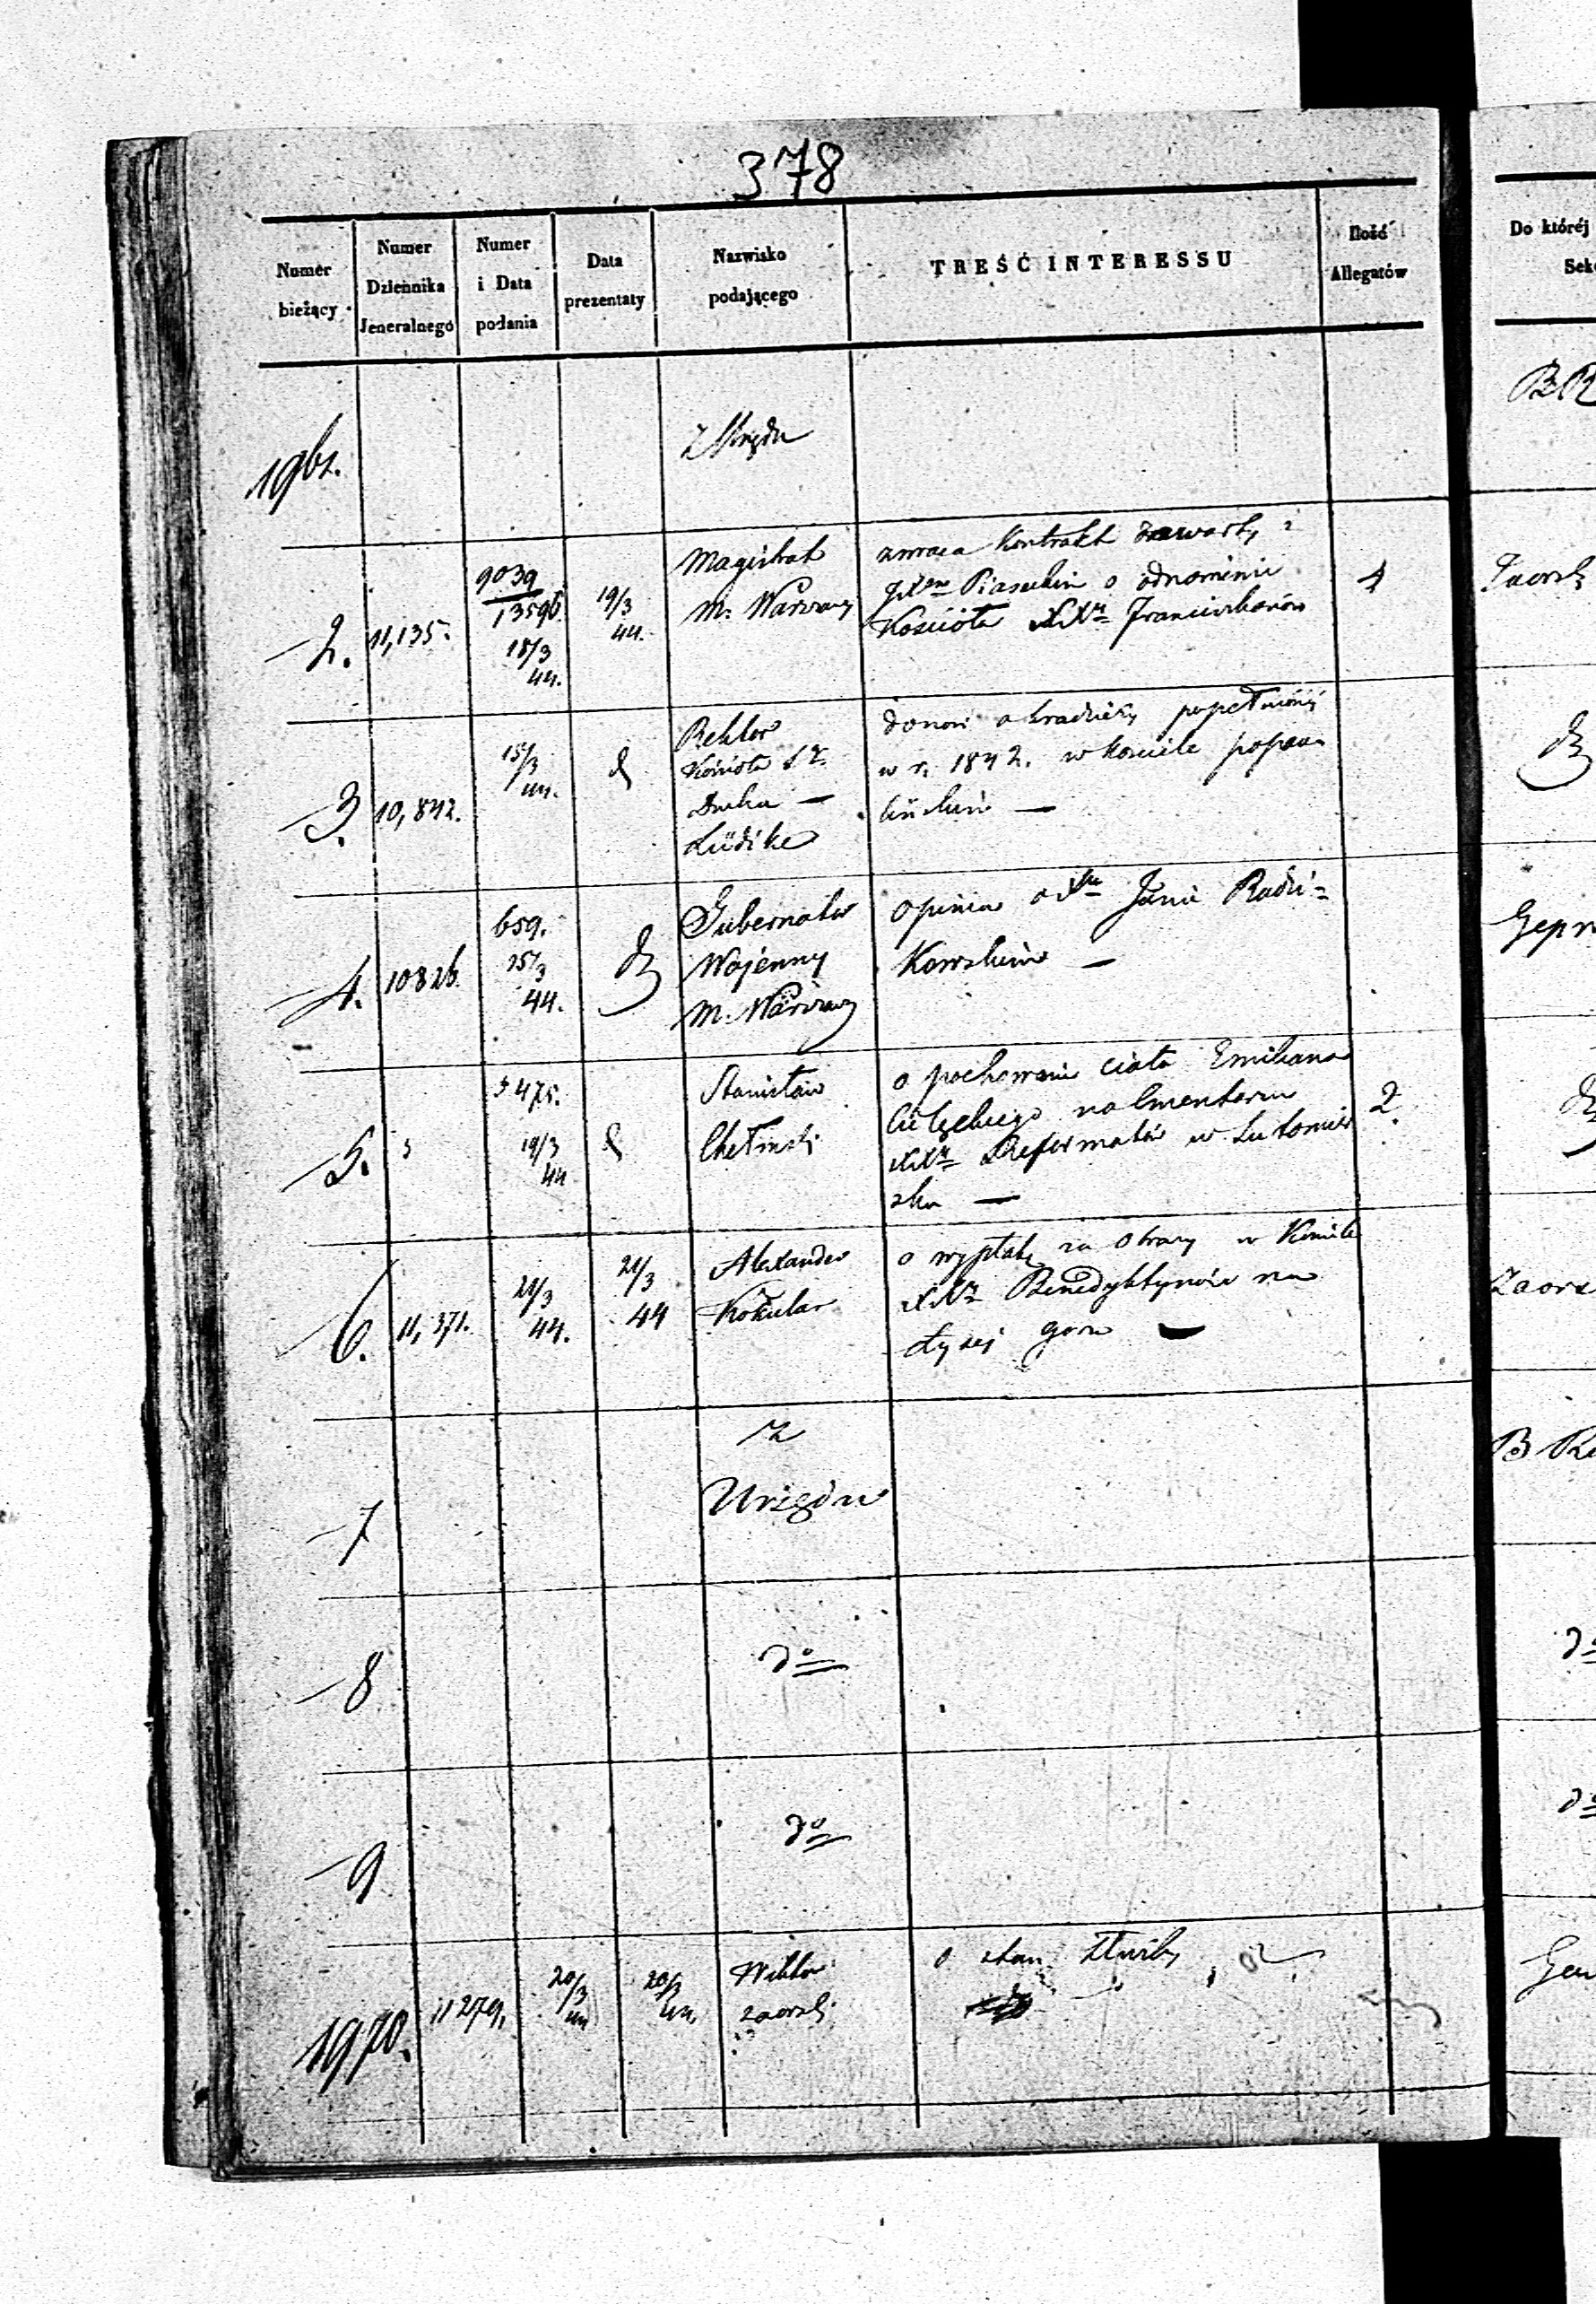 378
Numer bieżący
Numer Dziennika Jeneralnego
Numer i Data podania
Data prezentaty
Nazwisko podającego
TREŚĆ INTERESSU
Ilość Allegatów
Do któréj
1961.
Z Urzędu
2.
11,135.
9039
13596.
18/3
44.
19/3
44.
Magistrat
M. Warszawy
zwraca Kontrakt zawarty z
Piaseckim o odnowienie
Kościoła XXw Franciszkanów
4
3.
10,842.
15/3
44.
d
Rektor
Kościoła Sr.
Ducha —
Lüdike
donosi o kradzieży popełnioney
w r. 1842. w kościele popau-
lińskim —
4.
10826.
659.
15/3
44.
Gubernator
Wojenny
M. Warszawy
opinia o Xdu Janie Radzi-
Kowskim —
5.
5475.
19/3
44
Stanisław
Chełmski
o pochowanie ciała Emiliana
na Cmentarzu
XXw Reformatów w Lutomier
sku —
2.
6.
11,371.
21/3
44.
21/3
44
Alexander
Kokular
o wypłatę za obrazy w Kościele
XXw Benedyktynów na
Łysej gorze —
Zaors
7
z
Urzędu
8
do
9
do
1970.
11279,
20/3
44
20/3
44.
Wiktor
Zaorski
o stan służby